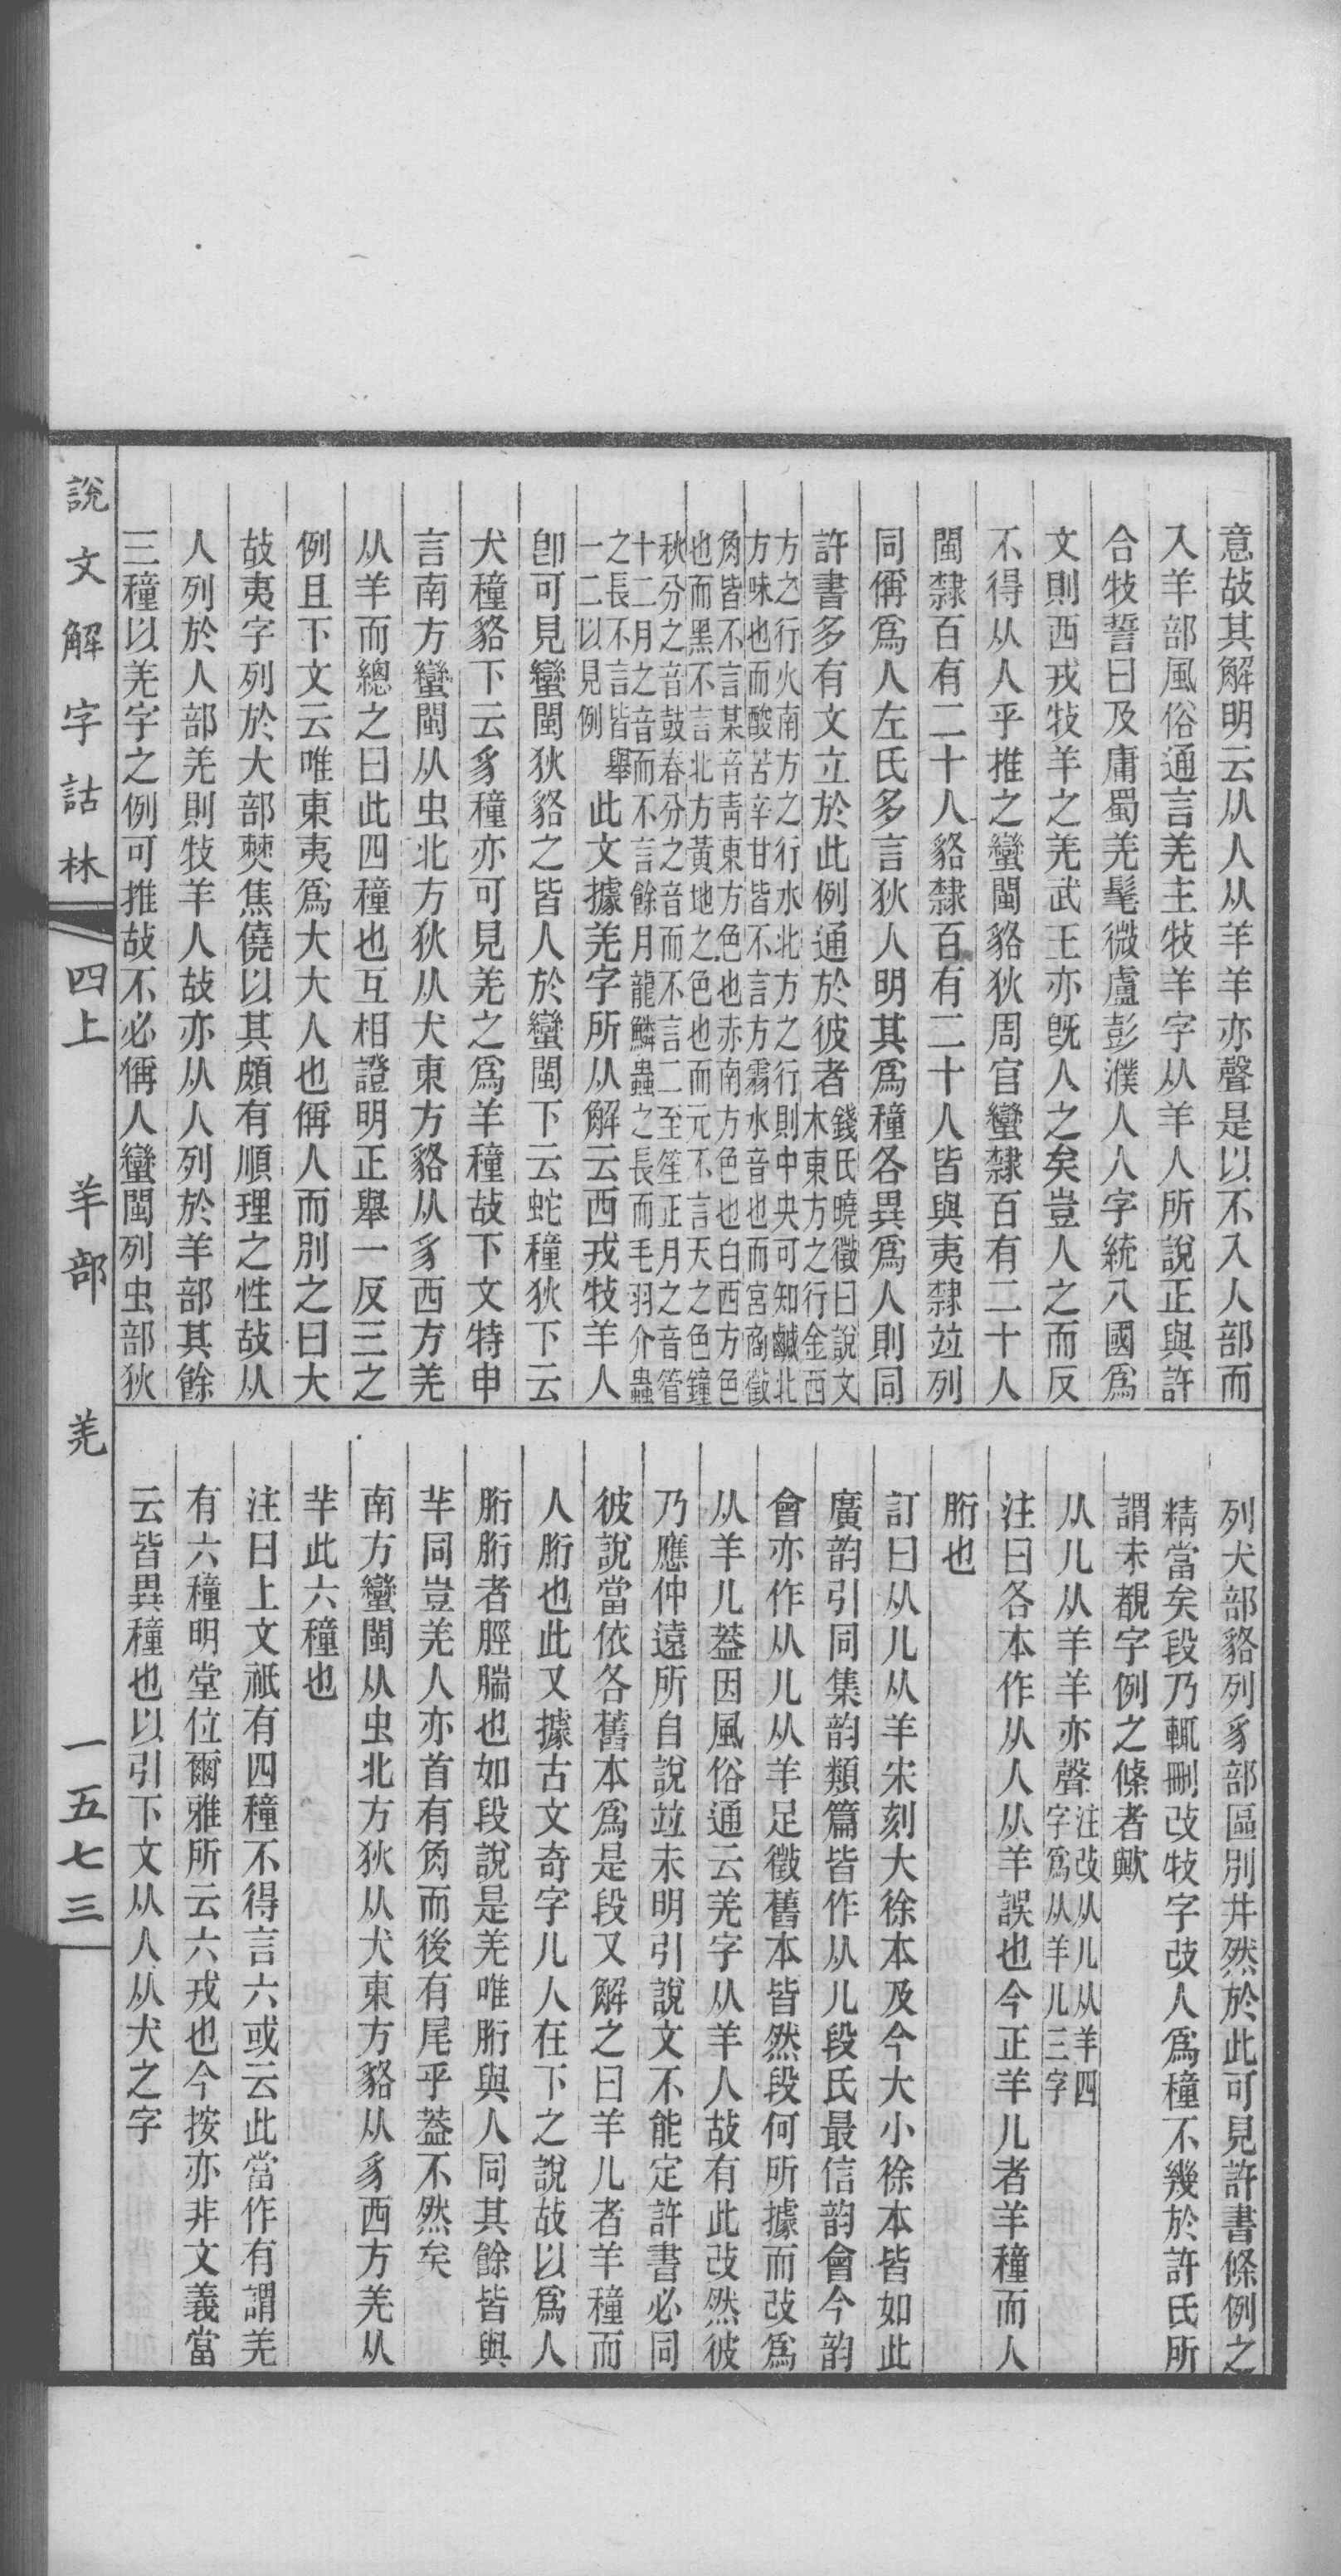 意故其解明云从人从羊羊亦聲是以不入人部而
入羊部風俗通言羌主牧羊字从羊人所說正與許
合牧誓曰及庸蜀羌髦微盧彭濮人人字統八國爲
文則西戎牧羊之羌武王亦旣人之矣豈人之而反
不得从人乎推之蠻閩貉狄周官蠻隸百有二十人
閩隸百有二十人貉隸百有二十人皆與夷隸竝列
同偁爲人左氏多言狄人明其爲種各異爲人則同
許書多有文立於此例通於彼者錢氏曉徵曰說文
木東方之行金西
方之行火南方之行水北方之行則中央可知鹹北
方味也而酸苦辛甘皆不言方霸水音也而宮商徵
角皆不言某音靑東方色也赤南方色也白西方色
也而黑不言北方黃地之色也而元不言天之色鐘
秋分之音鼓春分之音而不言二至笙正月之音管
十二月之音而不言餘月龍鱗蟲之長而毛羽介蟲
之長不言皆舉
一二以見例
此文據羌字所从解云西戎牧羊人
卽可見蠻閩狄貉之皆人於蠻閩下云蛇種狄下云
犬種貉下云豸種亦可見羌之爲羊種故下文特申
言南方蠻閩从虫北方狄从犬東方貉从豸西方羌
从羊而總之曰此四種也互相證明正舉一反三之
例且下文云唯東夷爲大大人也偁人而別之曰大
故夷字列於大部僰焦僥以其頗有順理之性故从
人列於人部羌則牧羊人故亦从人列於羊部其餘
三種以羌字之例可推故不必偁人蠻閩列虫部狄
列犬部貉列豸部區別井然於此可見許書條例之
精當矣段乃輒刪改牧字改人爲種不幾於許氏所
謂未覩字例之條者歟
从儿从羊羊亦聲注改从儿从羊四
字爲从羊儿三字
注曰各本作从人从羊誤也今正羊儿者羊種而人
胻也
訂曰从儿从羊宋刻大徐本及今大小徐本皆如此
廣韵引同集韵類篇皆作从儿段氏最信韵會今韵
會亦作从儿从羊足徵舊本皆然段何所據而改爲
从羊儿葢因風俗通云羌字从羊人故有此改然彼
乃應仲遠所自說竝未明引說文不能定許書必同
彼說當依各舊本爲是段又解之曰羊儿者羊種而
人胻也此又據古文奇字儿人在下之說故以爲人
胻胻者脛腨也如段說是羌唯胻與人同其餘皆與
羊同豈羌人亦首有角而後有尾乎葢不然矣
南方蠻閩从虫北方狄从犬東方貉从豸西方羌从
羊此六種也
注曰上文祇有四種不得言六或云此當作有謂羌
有六種明堂位爾雅所云六戎也今按亦非文義當
云皆異種也以引下文从人从犬之字
說文解字詁林 四上 羊部 羌 一五七三